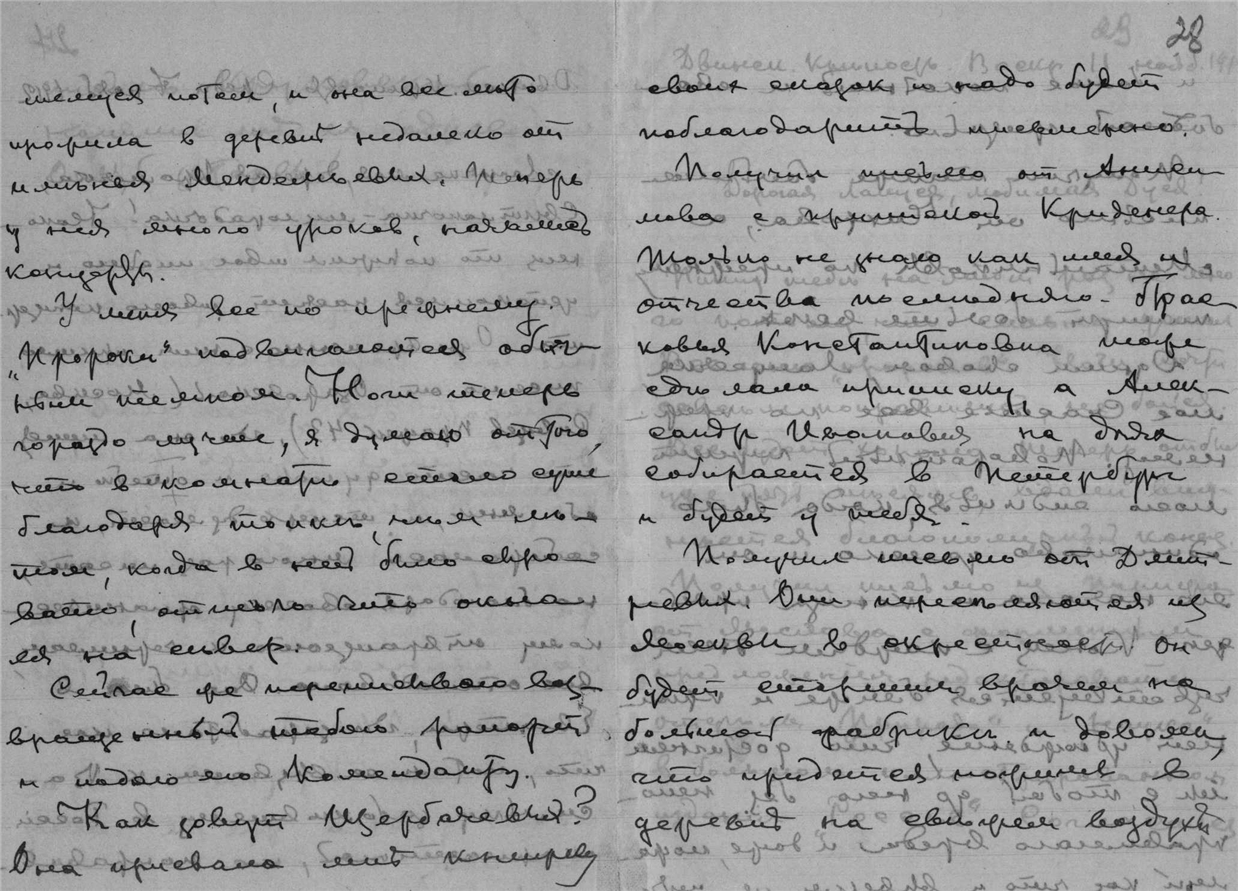 шемуся потом, и она все лѣто
прожила в деревнѣ недалеко от
имѣнья Менделѣевых. Теперь
у нея много уроков, начались
концерты.
У меня все по прежнему.
„Пророки“ подвигаются обыч-
ным темпом. Ночи теперь
гораздо лучше, я думаю оттого,
что в комнатѣ стало суше
благодаря топкѣ, чѣм лѣ-
том, когда в ней было сыро-
вато, оттого что окна
ея на сѣвер.
Сейчас же переписываю воз-
вращенный тобою рапорт
и подаю его Коменданту.
Как зовут Щербачевых?
Она прислала мнѣ книжку
28
своих сказок и надо будет
поблагодарить письменно.
Получил письмо от Аниси-
мова с припиской Криденера.
Только не знаю как имя и
отчества послѣдняго. Прас-
ковья Константиновна тоже
сдѣлала приписку, а Алек-
сандр Иванович на днях
собирается в Петербург
и будет у тебя.
Получил письмо от Дмит-
ревых. Они переселяются из
Москвы в окрестности. Он
будет старшим врачем на
большой фабрикѣ и доволен,
что придется пожить в
деревнѣ на свѣжем воздухѣ